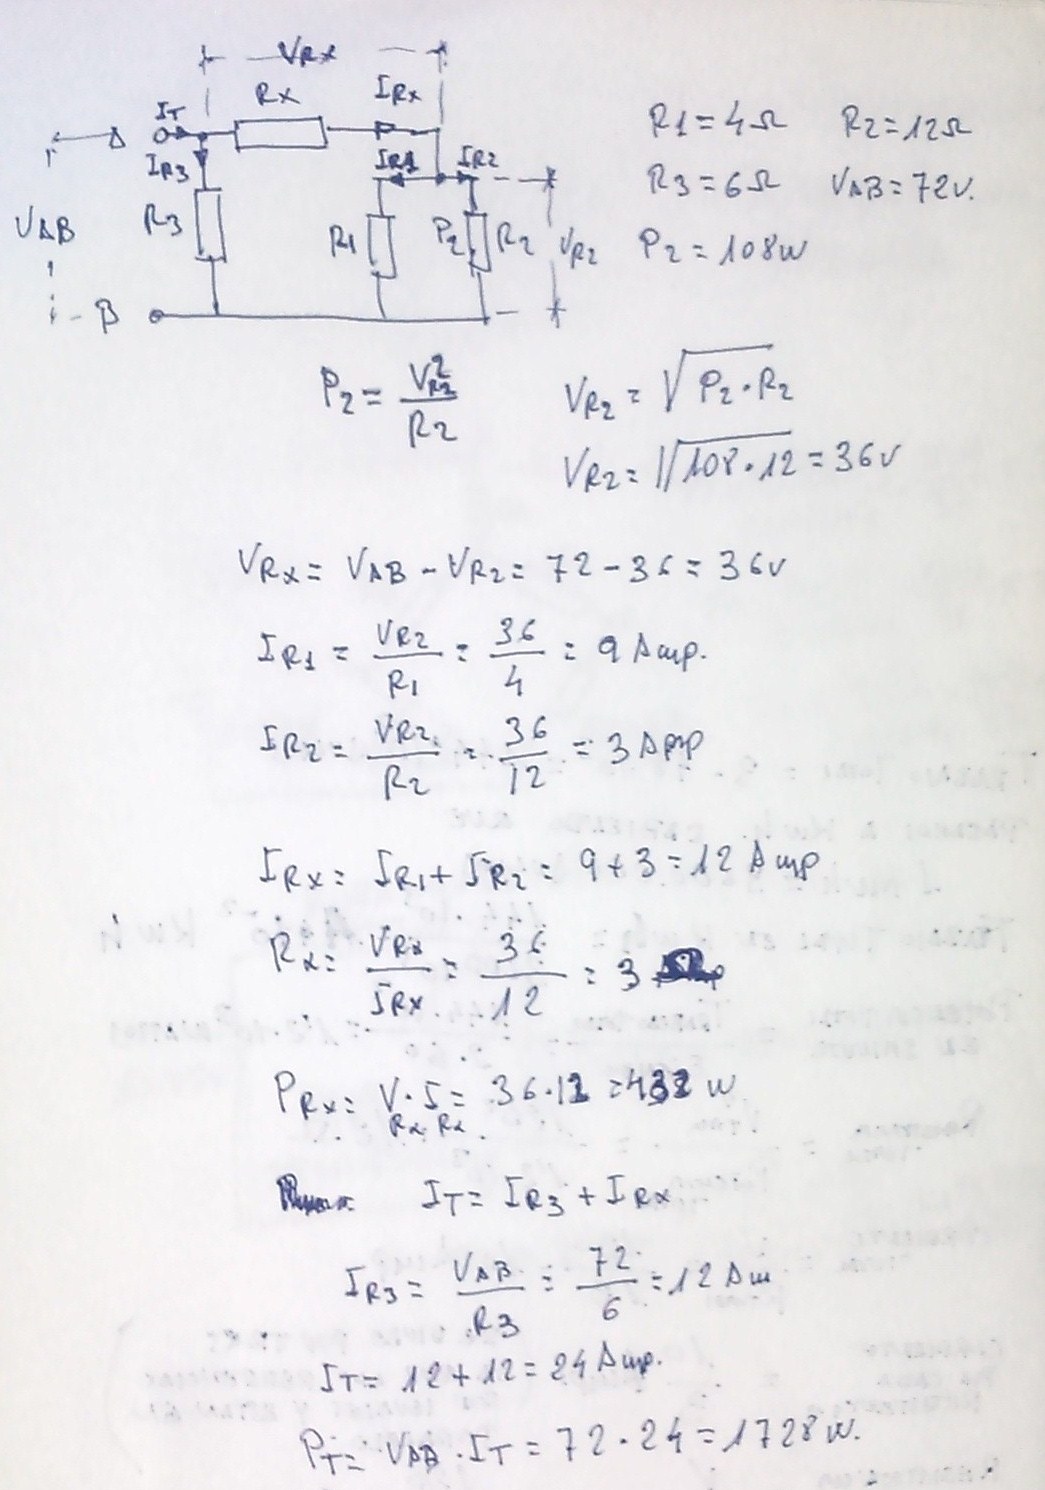 VRx
Rx IRx
IT
A
IR3 IR1 IR2
R1=4Ω R2=12Ω
R3=6Ω VAB=72V.
VAB R3 R1 P2 R2 VR2
P2=108W
B
P2 = VR2² / R2
VR2 = √P2·R2
VR2 = √108·12 = 36V
VRx = VAB - VR2 = 72 - 36 = 36V
IR1 = VR2 / R1 = 36 / 4 = 9 Amp.
IR2 = VR2 / R2 = 36 / 12 = 3 Amp
IRx = IR1 + IR2 = 9 + 3 = 12 Amp
Rx = VRx / IRx = 36 / 12 = 3 Ω
PRx = V·I = 36·12 = 432 W
Rx Rx
IT = IR3 + IRx
IR3 = VAB / R3 = 72 / 6 = 12 Am
IT = 12 + 12 = 24 Amp.
PT = VAB · IT = 72 · 24 = 1728 W.